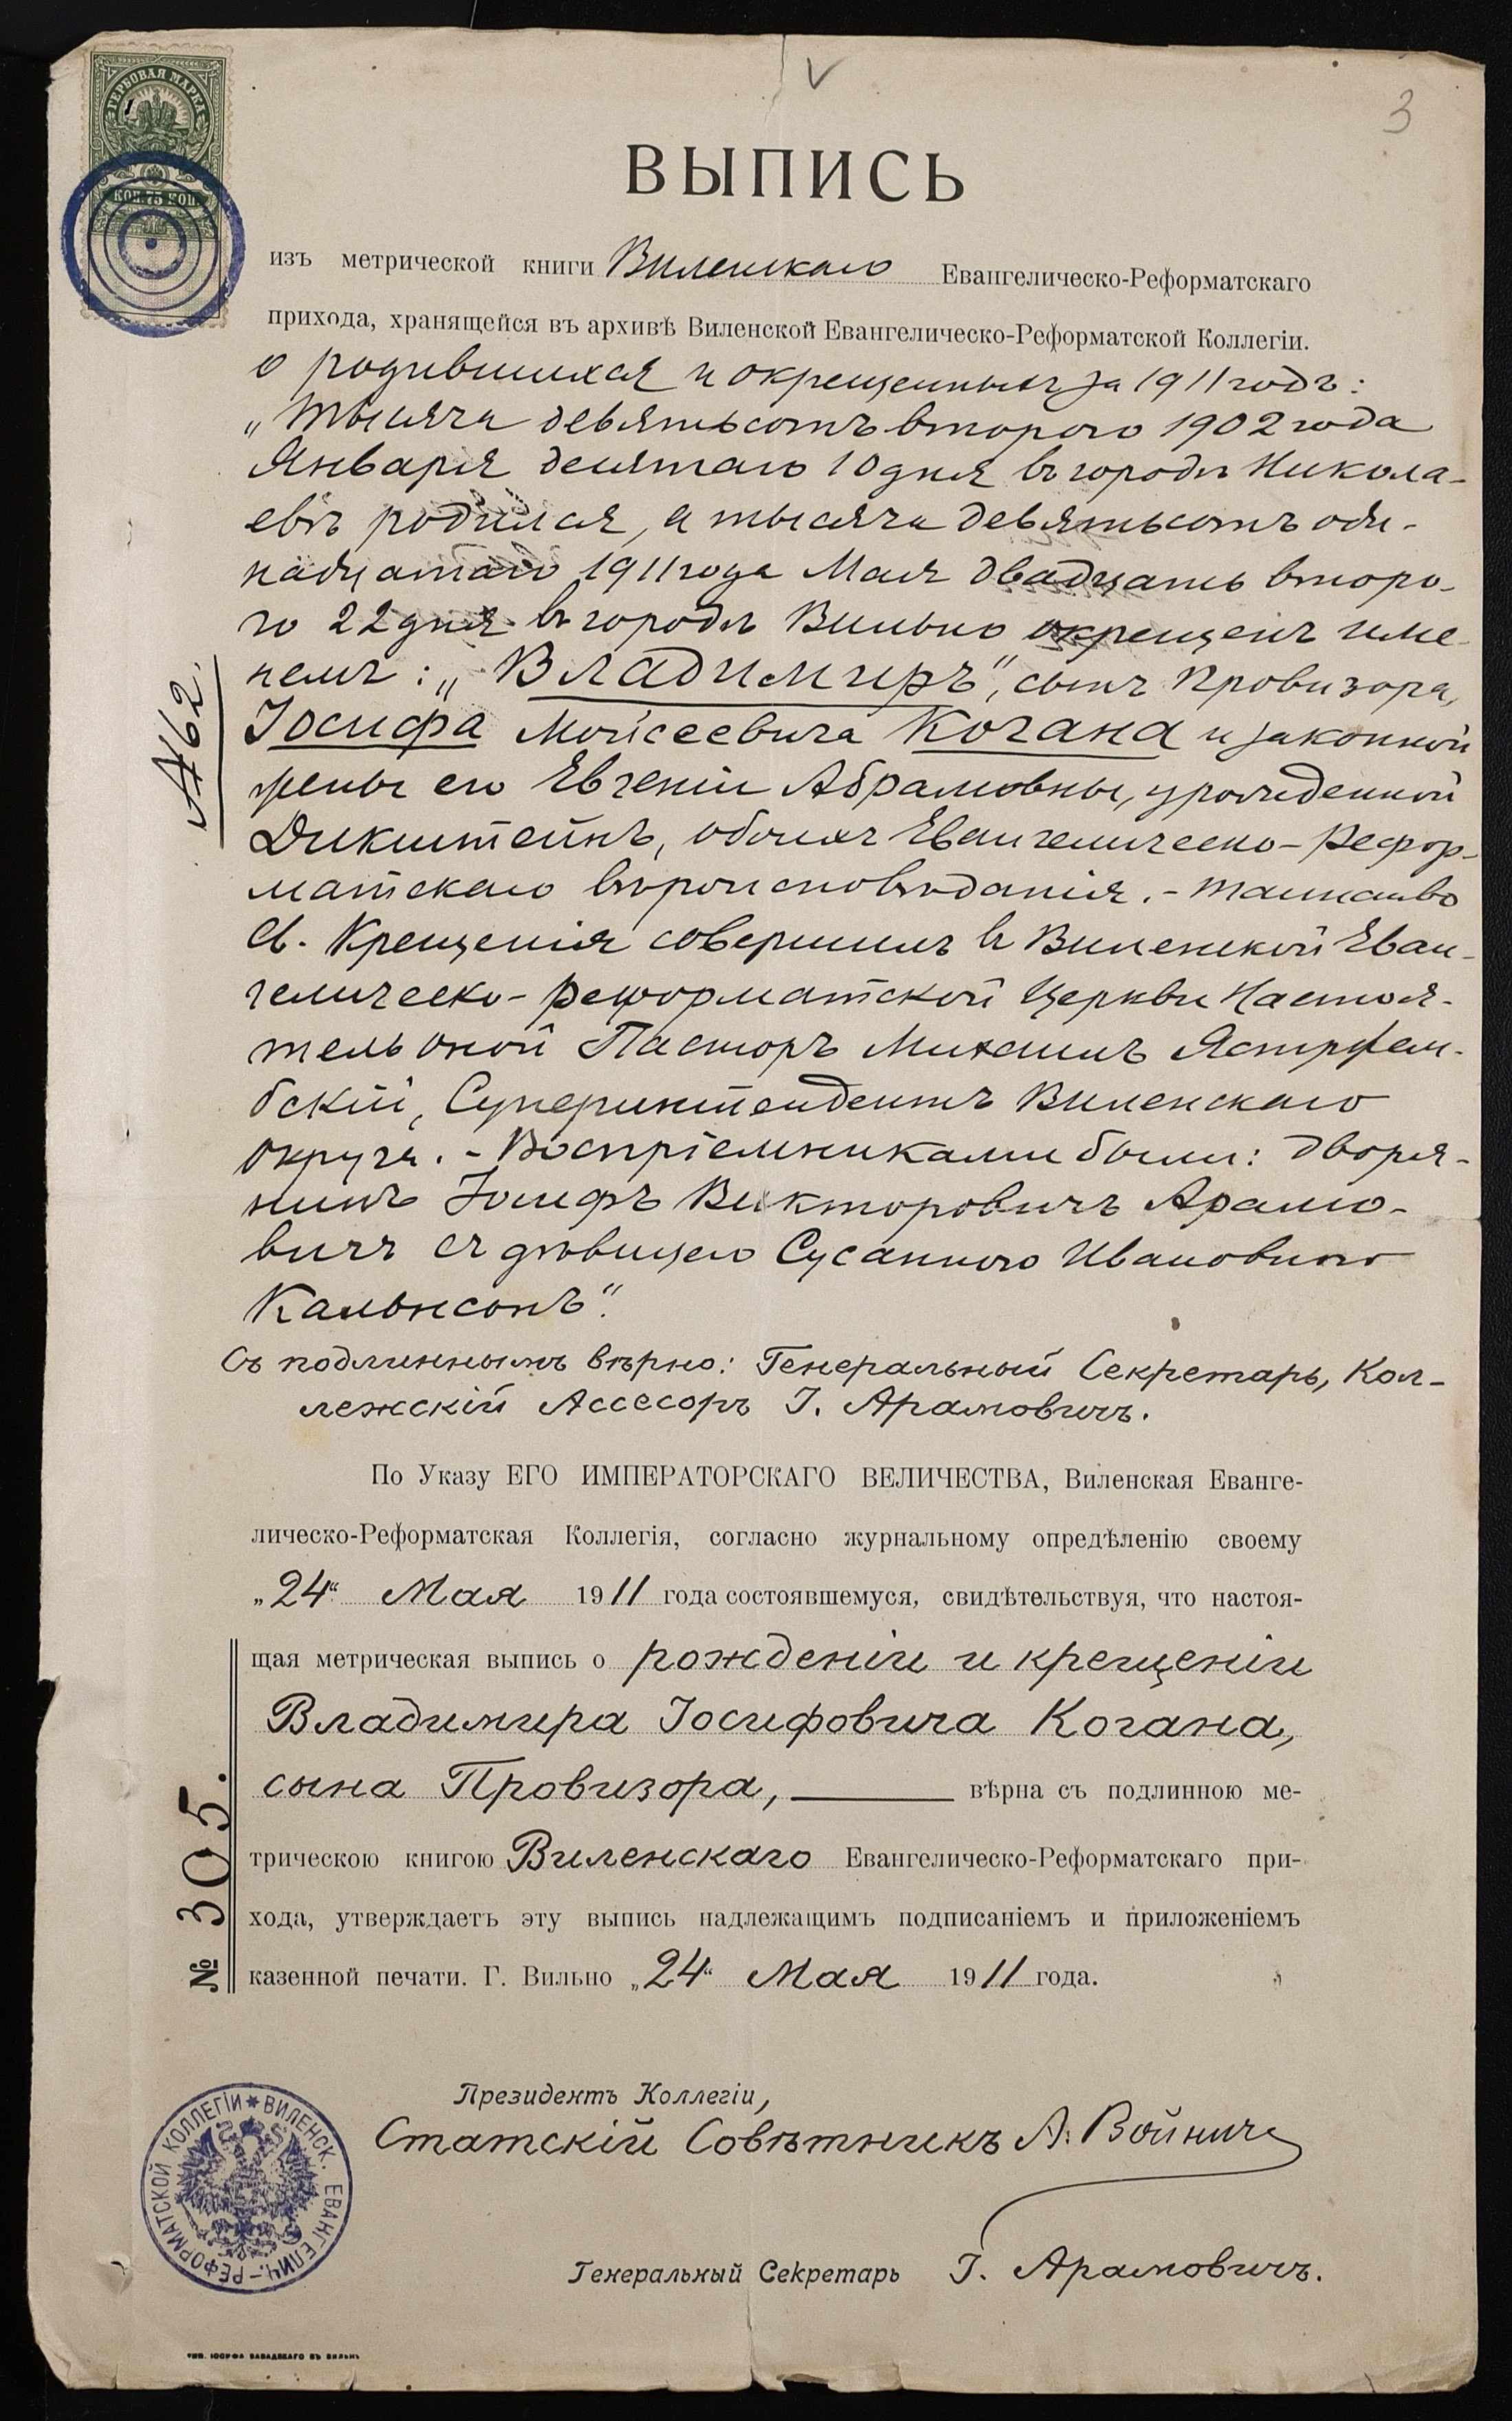 3
ГЕРБОВАЯ МАРКА
КОП. 75 КОП.
ВЫПИСЬ
изъ метрической книги Виленскаго Евангелическо-Реформатскаго
прихода, хранящейся въ архивѣ Виленской Евангелическо-Реформатской Коллегіи.
о родившихся и окрещенныхъ за 1911 годъ:
„Тысяча девятьсотъ второго 1902 года
Января десятаго 10 дня въ городѣ Никола-
евѣ родился, а тысяча девятьсотъ оди-
надцатаго 1911 года Мая двадцать второ-
го 22 дня въ городѣ Вильно окрещенъ име-
немъ: „Владимиръ", сынъ Провизора,
Іосифа Мойсеевича Когана и законной
жены его Евгеніи Абрамовны, урожденной
Дикштейнъ, обоихъ Евангелическо-Рефор-
матскаго вѣроисповѣданія. - Таинство
Св. Крещенія совершилъ въ Виленской Еван-
гелическо-Реформатской Церкви Настоя-
тель оной Пасторъ Михаилъ Ястржем-
бскій, Суперинтендентъ Виленскаго
Округа. - Воспріемниками были: Дворя-
нинъ Іосифъ Викторовичъ Арамо-
вичъ съ дѣвицею Сусанною Ивановною
Кальнсонъ".
№ 62.
Съ подлиннымъ вѣрно: Генеральный Секретарь, Кол-
лежскій Ассесоръ І. Арамовичъ.
По Указу ЕГО ИМПЕРАТОРСКАГО ВЕЛИЧЕСТВА, Виленская Еванге-
лическо-Реформатская Коллегія, согласно журнальному опредѣленію своему
„24" Мая 1911 года состоявшемуся, свидѣтельствуя, что настоя-
щая метрическая выпись о рожденіи и крещеніи
Владимира Іосифовича Когана,
сына Провизора, вѣрна съ подлинною ме-
трическою книгою Виленскаго Евангелическо-Реформатскаго при-
хода, утверждаетъ эту выпись надлежащимъ подписаніемъ и приложеніемъ
казенной печати. Г. Вильно „24" Мая 1911 года.
№ 305.
Президентъ Коллегіи,
Статскій Совѣтникъ А. Войнич
Генеральный Секретарь І. Арамовичъ.
ВИЛЕНСК. ЕВАНГЕЛИЧ.-РЕФОРМАТСКОЙ КОЛЛЕГІИ
ТИП. ІОСИФА ЗАВАДЗКАГО ВЪ ВИЛЬНѢ